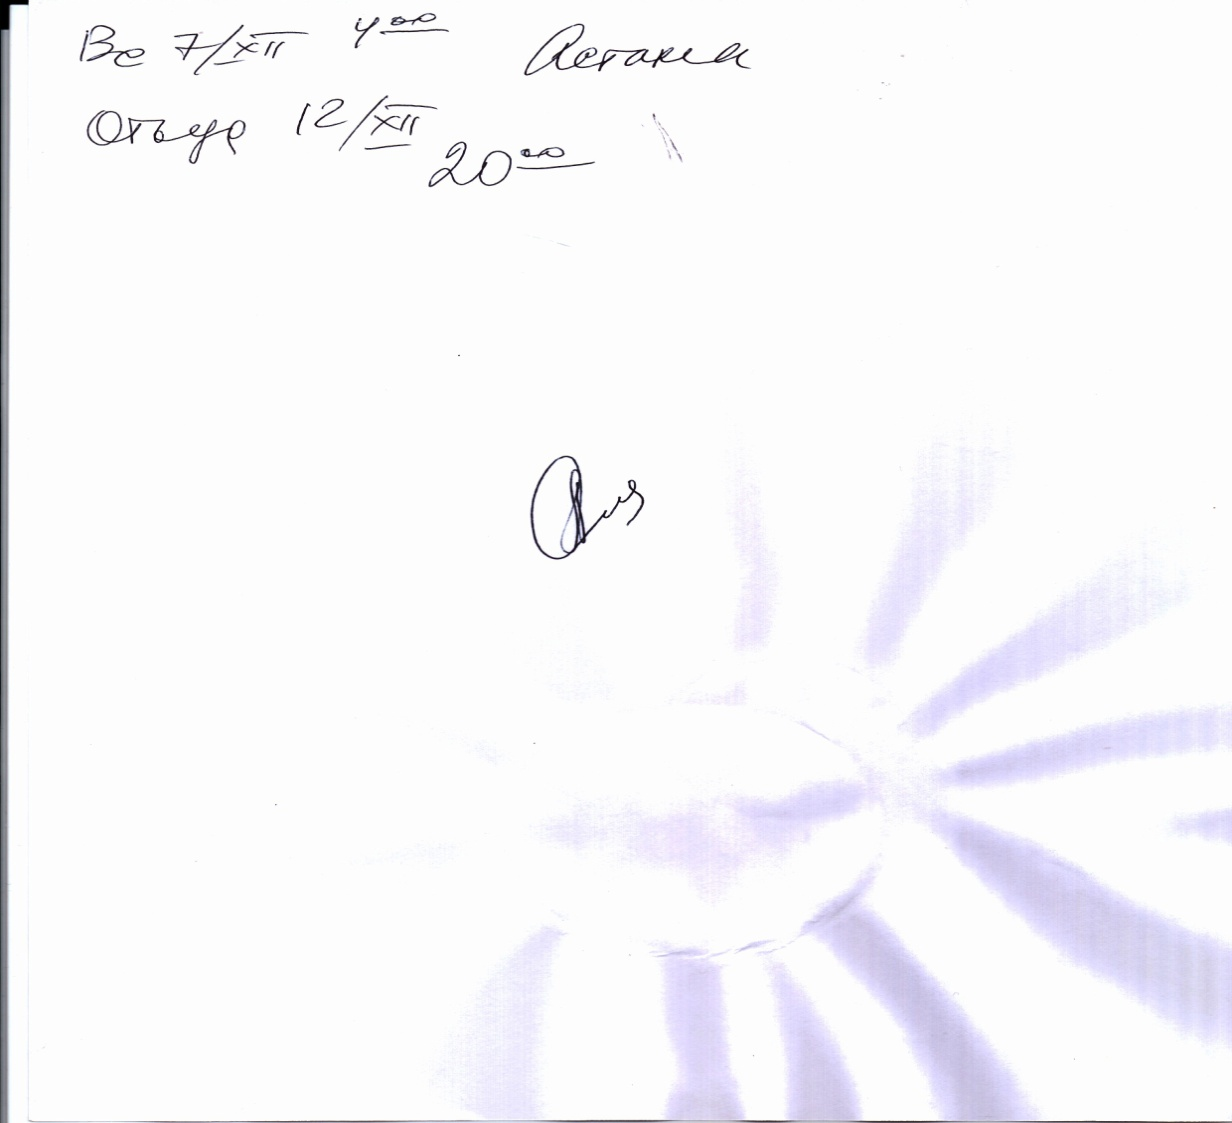 Вс 7/XII 4⁰⁰ Астана
Отъезд 12/XII
20⁰⁰